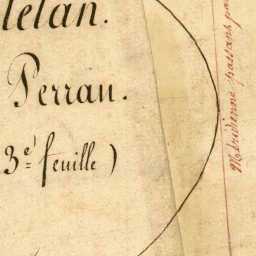 lelan.
Perran.
3e feuille)
Méridienne passant pa